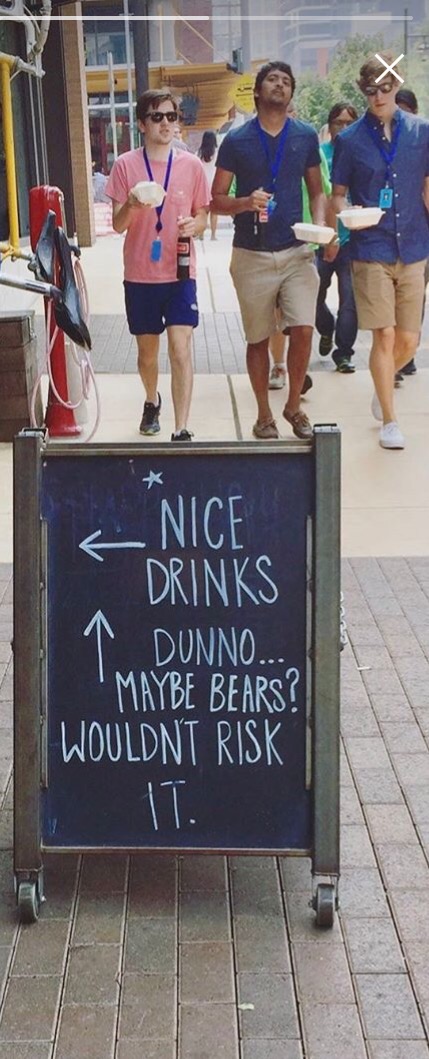 NICE
DRINKS
DUNNO...
MAYBE BEARS?
WOULDN'T RISK
IT.